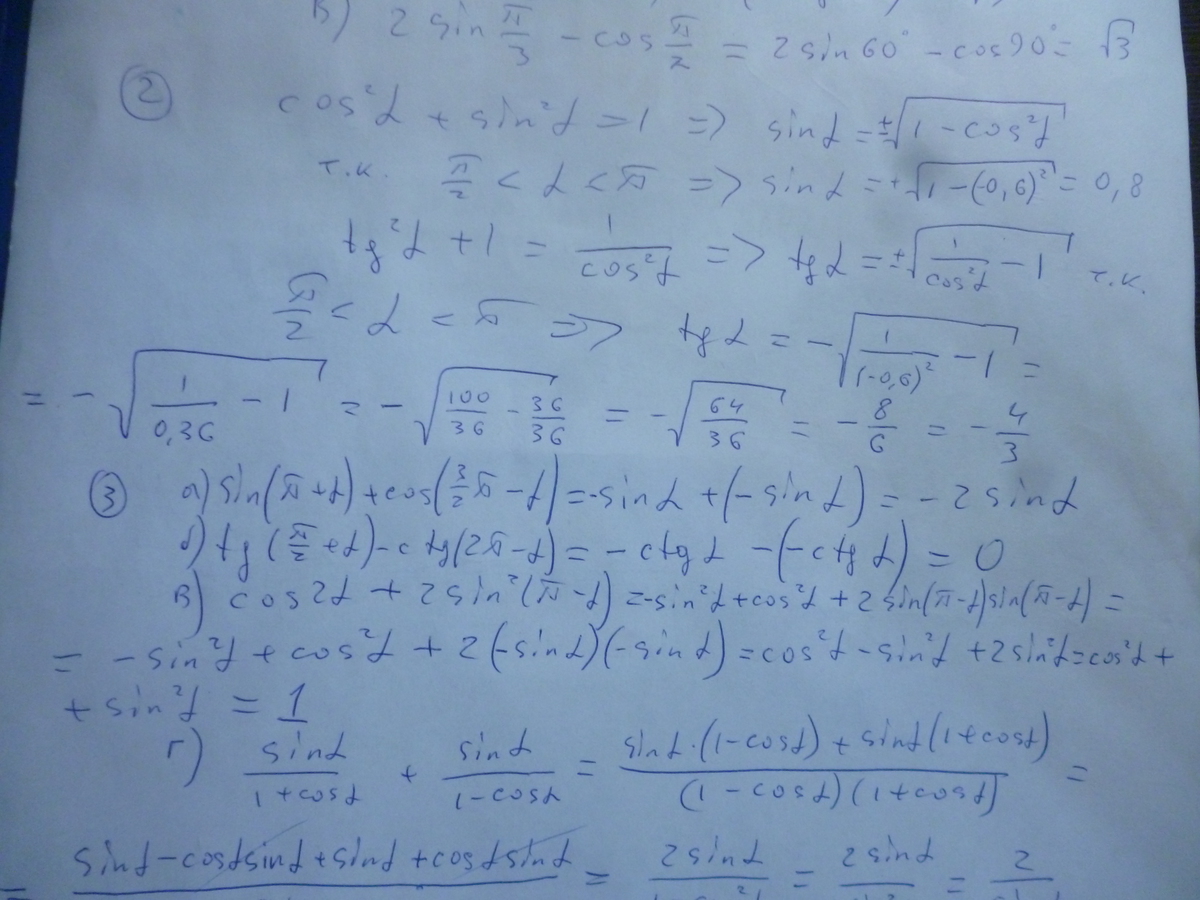 в) 2 sin π/3 − cos π/2 = 2 sin 60° − cos 90° = √3
② cos²α + sin²α = 1 => sin α = ±√(1 − cos²α)
т.к. π/2 < α < π => sin α = +√(1 − (−0,6)²) = 0,8
tg²α + 1 = 1/cos²α => tg α = ±√(1/cos²α − 1) т.к.
π/2 < α < π => tg α = −√(1/(−0,6)² − 1) =
= −√(1/0,36 − 1) = −√(100/36 − 36/36) = −√(64/36) = −8/6 = −4/3
③ а) sin(π + α) + cos(3/2 π − α) = −sin α + (−sin α) = −2 sin α
б) tg(π/2 + α) − ctg(2π − α) = −ctg α − (−ctg α) = 0
в) cos 2α + 2 sin²(π − α) = −sin²α + cos²α + 2 sin(π − α) sin(π − α) =
= −sin²α + cos²α + 2(−sin α)(−sin α) = cos²α − sin²α + 2 sin²α = cos²α +
+ sin²α = 1
г) sin α/(1 + cos α) + sin α/(1 − cos α) = (sin α · (1 − cos α) + sin α (1 + cos α))/((1 − cos α)(1 + cos α)) =
= sin α − cos α sin α + sin α + cos α sin α = 2 sin α = 2 sin α = 2